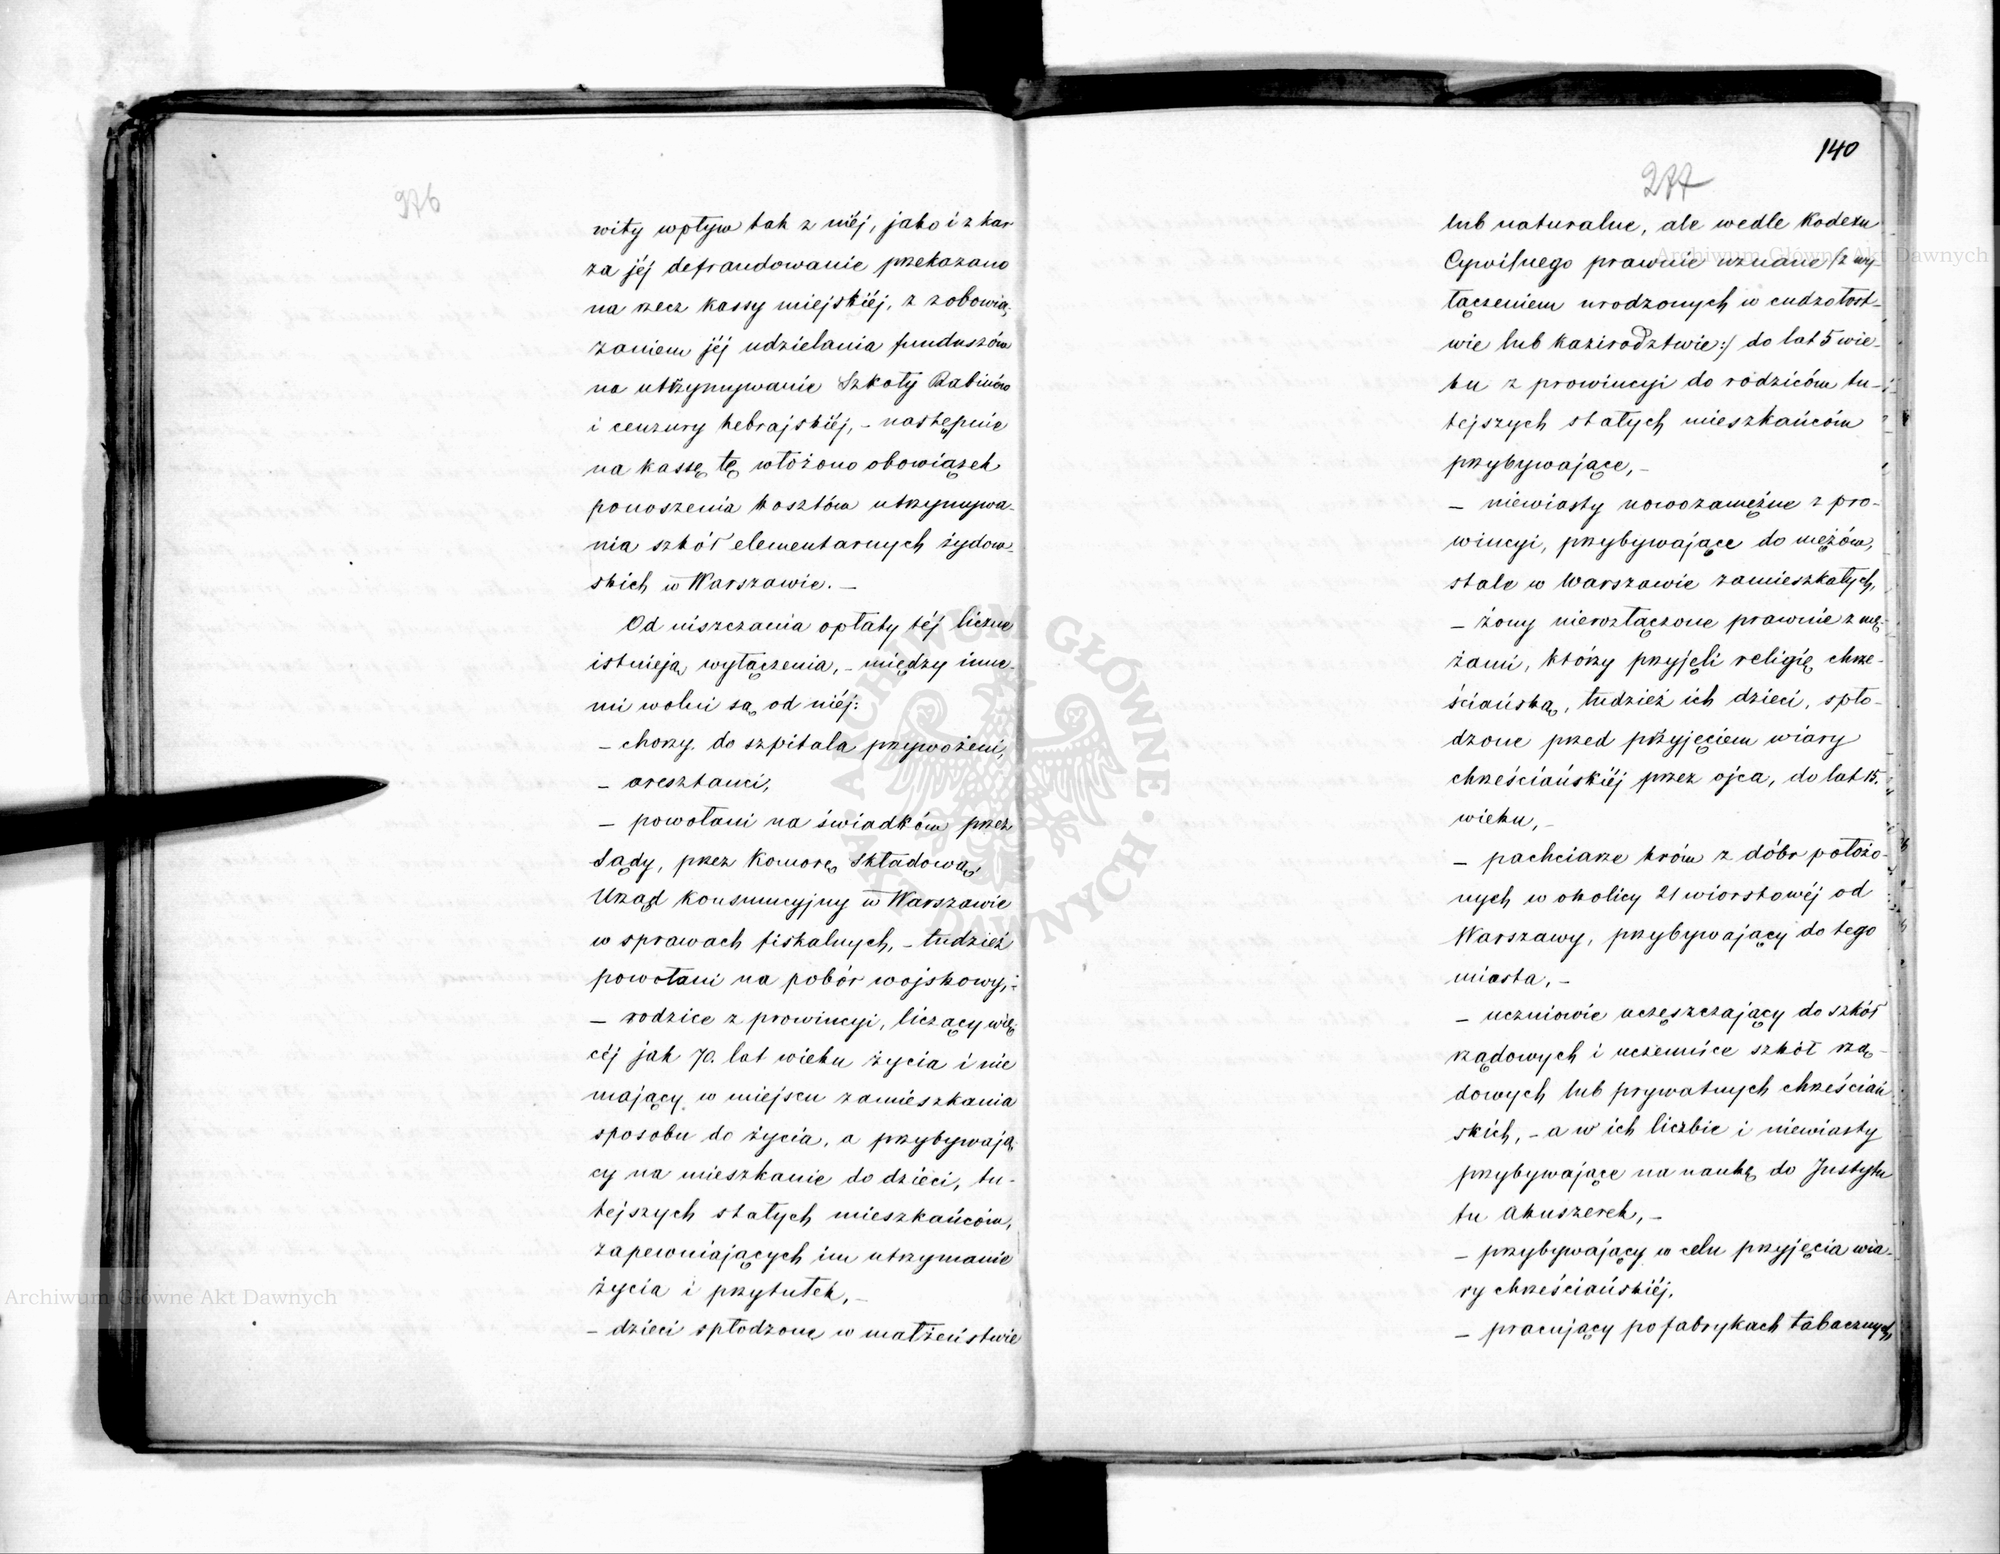 276
wity wpływ tak z niéj, jako i z kar
za jéj defraudowanie przekazano
na rzecz kassy miejskiéj, z zobowią-
zaniem jéj udzielania funduszów
na utrzymywanie Szkoły Rabinów
i cenzury hebrajskiéj, – następnie
na kassę tę włożono obowiązek
ponoszenia kosztów utrzymywa-
nia szkół elementarnych żydow-
skich w Warszawie. –
Od uiszczania opłaty téj liczne
istnieją wyłączenia, – między inne-
mi wolni są od niéj:
– chorzy do szpitala przywożeni,
– aresztanci,
– powołani na świadków przez
Sądy, przez Komorę Składową,
Urząd Konsumcyjny w Warszawie
w sprawach fiskalnych, – tudzież
powołani na pobór wojskowy, –
– rodzice z prowincyi, liczący wię-
céj jak 70. lat wieku życia i nie
mający w miejscu zamieszkania
sposobu do życia, a przybywają-
cy na mieszkanie do dzieci, tu-
tejszych stałych mieszkańców,
zapewniających im utrzymanie
życia i przytułek, –
– dzieci spłodzone w małżeństwie
140
277
lub naturalne, ale wedle Kodexu
Cywilnego prawnie uznane /: z wy-
łączeniem urodzonych w cudzołost-
wie lub kazirodztwie :/ do lat 5 wie-
ku z prowincyi do rodziców tu-
tejszych stałych mieszkańców
przybywające, –
– niewiasty nowozamężne z pro-
wincyi, przybywające do mężów,
stale w Warszawie zamieszkałych,
– żony nierozłączone prawnie z mę-
żami, którzy przyjęli religię chrze-
ściańską, tudzież ich dzieci, spło-
dzone przed przyjęciem wiary
chrześciańskiéj przez ojca, do lat 15.
wieku, –
– pachciarze krów z dóbr położo-
nych w okolicy 21 wiorstowéj od
Warszawy, przybywający do tego
miasta, –
– uczniowie uczęszczający do szkół
rządowych i uczennice szkół rzą-
dowych lub prywatnych chrześciań
skich, – a w ich liczbie i niewiasty
przybywające na naukę do Instytu
tu Akuszerek, –
– przybywający w celu przyjęcia wia-
ry chrześciańskiéj,
– pracujący po fabrykach tabacznych,
ARCHIWUM GŁÓWNE AKT DAWNYCH
Archiwum Główne Akt Dawnych
Archiwum Główne Akt Dawnych